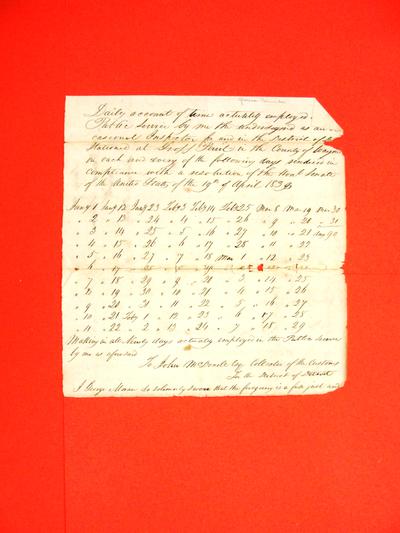 Daily account of time actually employed
Public Service by me the undersigned as an
casional Inspector for and in the District of
Stationed at Gross Point in the County of Wayne
in each and every of the following days rendered in
Compliance with a resolution of the Hon Senate
of the United States of the 19th of April 183
Jany 1 Jany 12 Jany 23 Feb 3 Feb 14 Feb 25 Mar 8 Mar 19 Mar 30
" 2 " 13 " 24 " 4 " 15 " 26 " 9 " 20 " 31
" 3 " 14 " 25 " 5 " 16 " 27 " 10 " 21
" 4 " 15 " 26 " 6 " 17 " 28 " 11 " 22
" 5 " 16 " 27 " 7 " 18 Mar 1 " 12 " 23
" 6 " 17
" 7 " 18 " 29 " 9 " 20 " 3 " 14 " 25
" 8 " 19 " 30 " 10 " 21 " 4 " 15 " 26
" 9 " 20 " 31 " 11 " 22 " 5 " 16 " 27
" 10 " 21 Feby 1 " 12 " 23 " 6 " 17 " 28
" 11 " 22 " 2 " 13 " 24 " 7 " 18 " 29
Making in all Ninety days actually employed in the Public Service
by me as aforesaid
To John McDonell Esq Collector of the Customs
for the District of Detroit
I George Moran do solemnly swear that the foregoing is a full just and